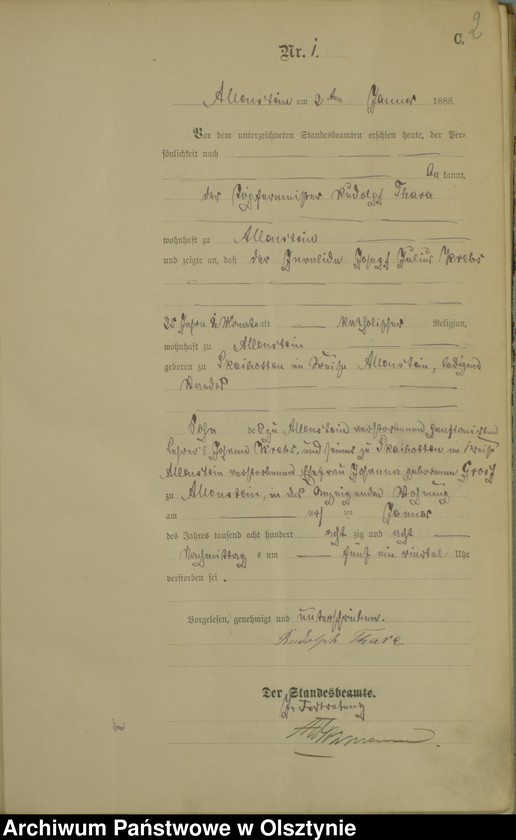 2
C.
Nr. 1.
Allenstein am 2ten Januar 1888.
Vor dem unterzeichneten Standesbeamten erschien heute, der Per-
sönlichkeit nach
kannt,
der Töpfermeister Rudolph Thara
wohnhaft zu Allenstein
und zeigte an, daß der Invalide Joseph Julius Krebs
25 Jahre 2 Monate alt katholischer Religion,
wohnhaft zu Allenstein
geboren zu Skaibotten im Kreise Allenstein, ledigen
Standes
Sohn des zu Allenstein verstorbenen pensionirten
Lehrers Johann Krebs, und seiner zu Skaibotten im Kreise
Allenstein verstorbenen Ehefrau Johanna geborenen Grosch
zu Allenstein, in des Anzeigenden Wohnung
am ersten Januar
des Jahres tausend acht hundert acht zig und acht
Nachmittags um fünf ein viertel Uhr
verstorben sei.
Vorgelesen, genehmigt und unterschrieben.
Rudolph Thara
Der Standesbeamte.
In Vertretung
Archiwum Państwowe w Olsztynie